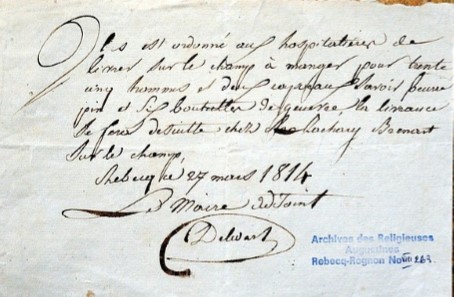 il est ordonné aux hospitalières de
livrer sur le champ à manger pour trente
cinq hommes et deux savoir beurre
pin et six Boutteilles de la livrance
se fera de suitte chez Zachary Brenart
sur le champ,
Rebecq ce 27 mars 1814
Le Maire adjoint
Delwart
Archives des Religieuses
Augustines
Rebecq-Rognon No